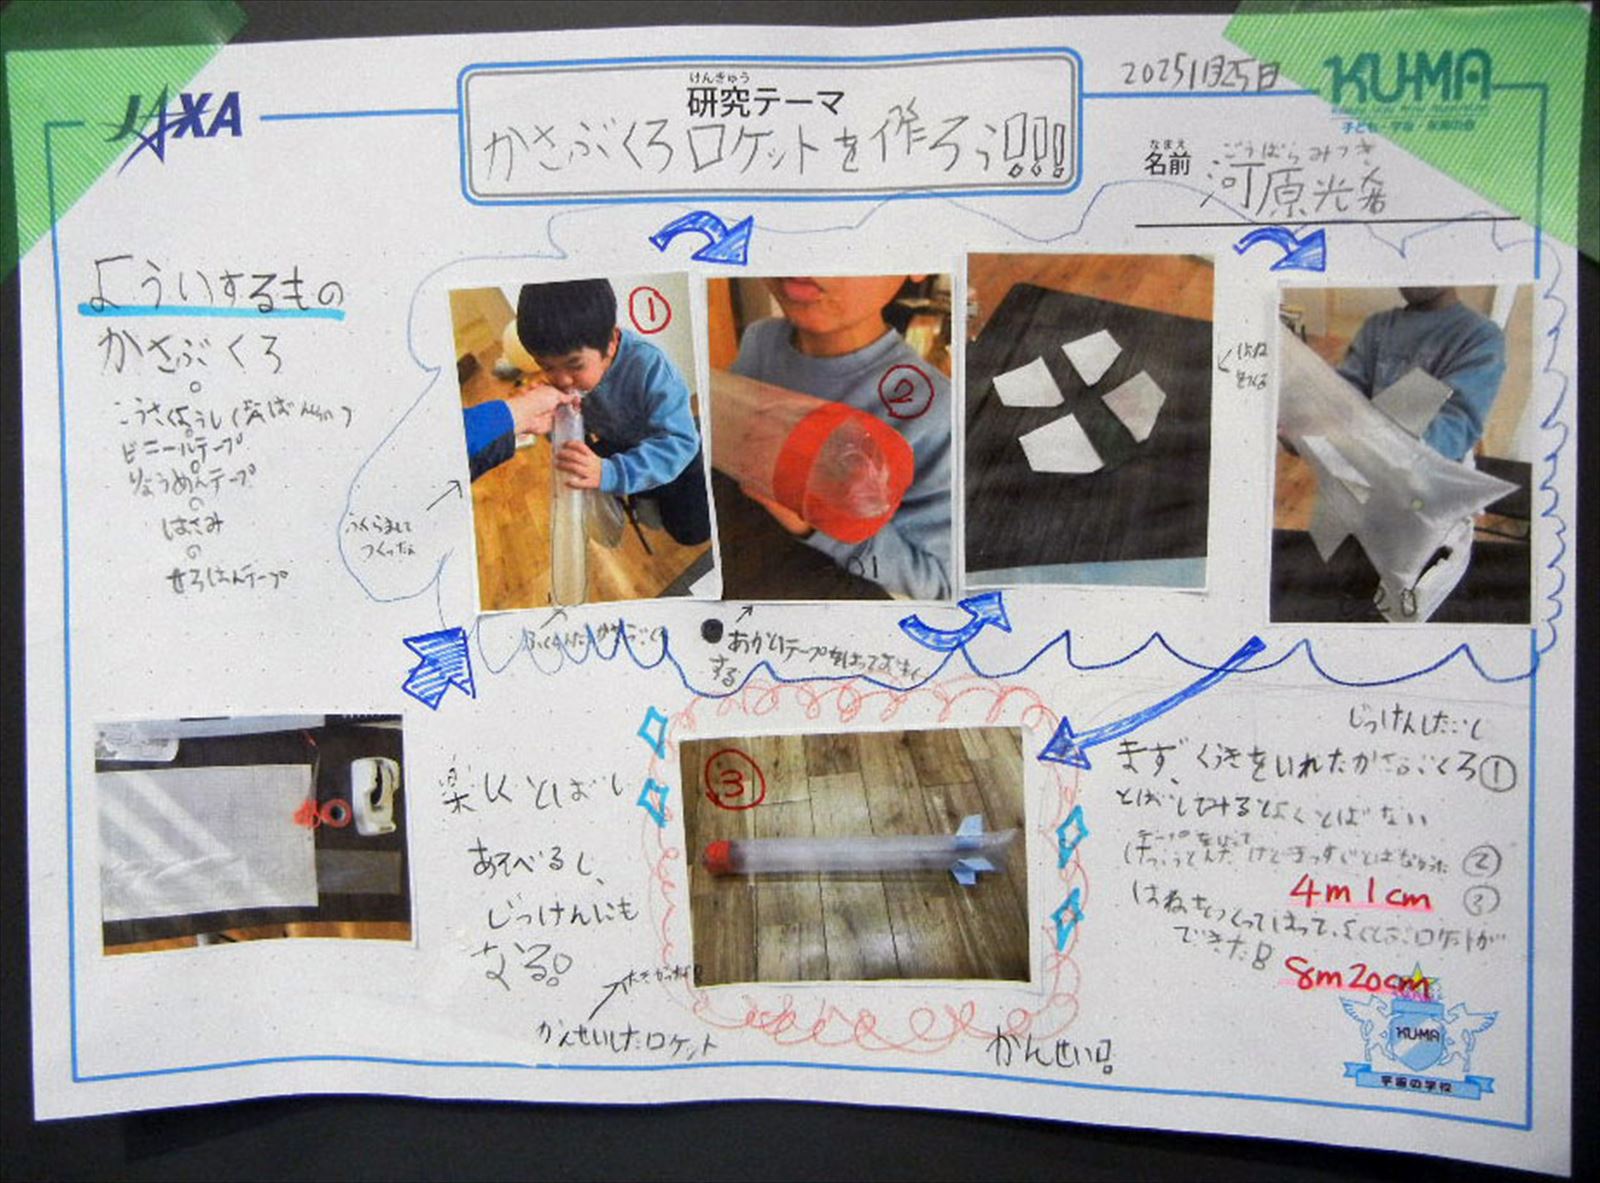 JAXA
けんきゅう
研究テーマ
かさぶくろロケットを作ろう!!!
2025 11月25日
KU-MA
子ども・宇宙・未来の会
なまえ
名前
ごうばらみつき
河原光
よういするもの
かさぶくろ
ビニールテープ
りょうめんテープ
はさみ
せろはんテープ
①
②
ふくらまして
つくったよ
はね
をつくる
ふくらんだかさぶくろ
あかいテープをはっておもく
する
楽しくとばし
あそべるし、
じっけんにも
なる。
かんせいしたロケット
③
かんせい!
じっけんしたこと
まず、くうきをいれたかさぶくろ①
とばしてみるとよくとばない
テープをはって
けっこうとんだけどまっすぐとばなかった②
4m1cm ③
はねをつくってはって、よくとぶロケットが
できた
8m20cm
KU-MA
宇宙の学校